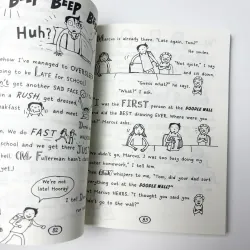 BEEP BEEP
Huh?
how I've managed to OVERSLEEP
going to be LATE for SCHOOL
get another SAD FACE
in a RUSH, get dressed
breakfast and meet
we do FAST
school and we get there JUST
bell. (Mr. Fullerman hasn't
We're not late! Hooray!
82
Marcus is already there. "Late again, Tom?"
He smiles.
"Not quite," I say
and sit down.
"Guess what?" he says.
"What?" I say.
I was the FIRST person at the DOODLE WALL
did the BEST drawing EVER. Where were you
Marcus asks.
didn't go, Marcus. I was too busy doing my
homework," I tell him.
whisper to me, "Tom, did your dad sort
anything out at the DOODLE WALL?"
Marcus HEARS. "I thought you said you
go to the wall?"
83